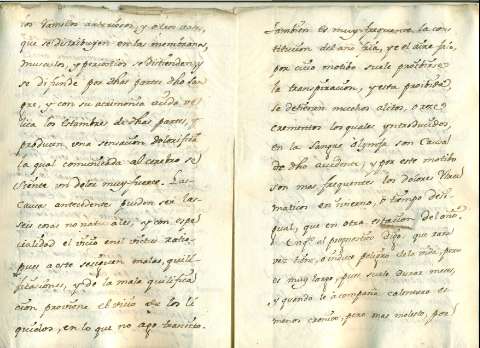 los ramitos arteriosos, y otros vasos,
que se distribuyen en las membranas,
musculos, y periostios se distienden, y
se difunde por dhas partes dho san
gre, y con su acrimonia acida ve
lica los estambres de dhas partes, y
producen una sensacion dolorifica
la qual comunicada al celebro se
siente un dolor muy fuerte. Las
causas antecedente pueden ser las
seis cosas no naturales, y con espe
cialidad el vicio en el victus rati
pues a este se siguen malas quili
ficaciones, y de la mala quilifica
cion proviene el vicio de los li
quidos, en lo que no ago transito.
tambien es muy frequente la cons
titucion del año fria, y el aire frio,
por cuio motibo suele proibirse
la transpiracion, y esta proibida,
se detienen muchos alitos, o ex
crementos los quales yntroducidos
en la sangre son causa
de dho accidente, y por este motibo
son mas frequentes los dolores Reu
maticos en invierno, o tiempo desi
gual, que en otra estacion del año.
En qto al pronostico digo que rara
vez tiene peligro de la vida, pero
es muy largo, pues suele durar meses,
y quando le acompaña calentura es
menos cronico, pero mas molesto, por